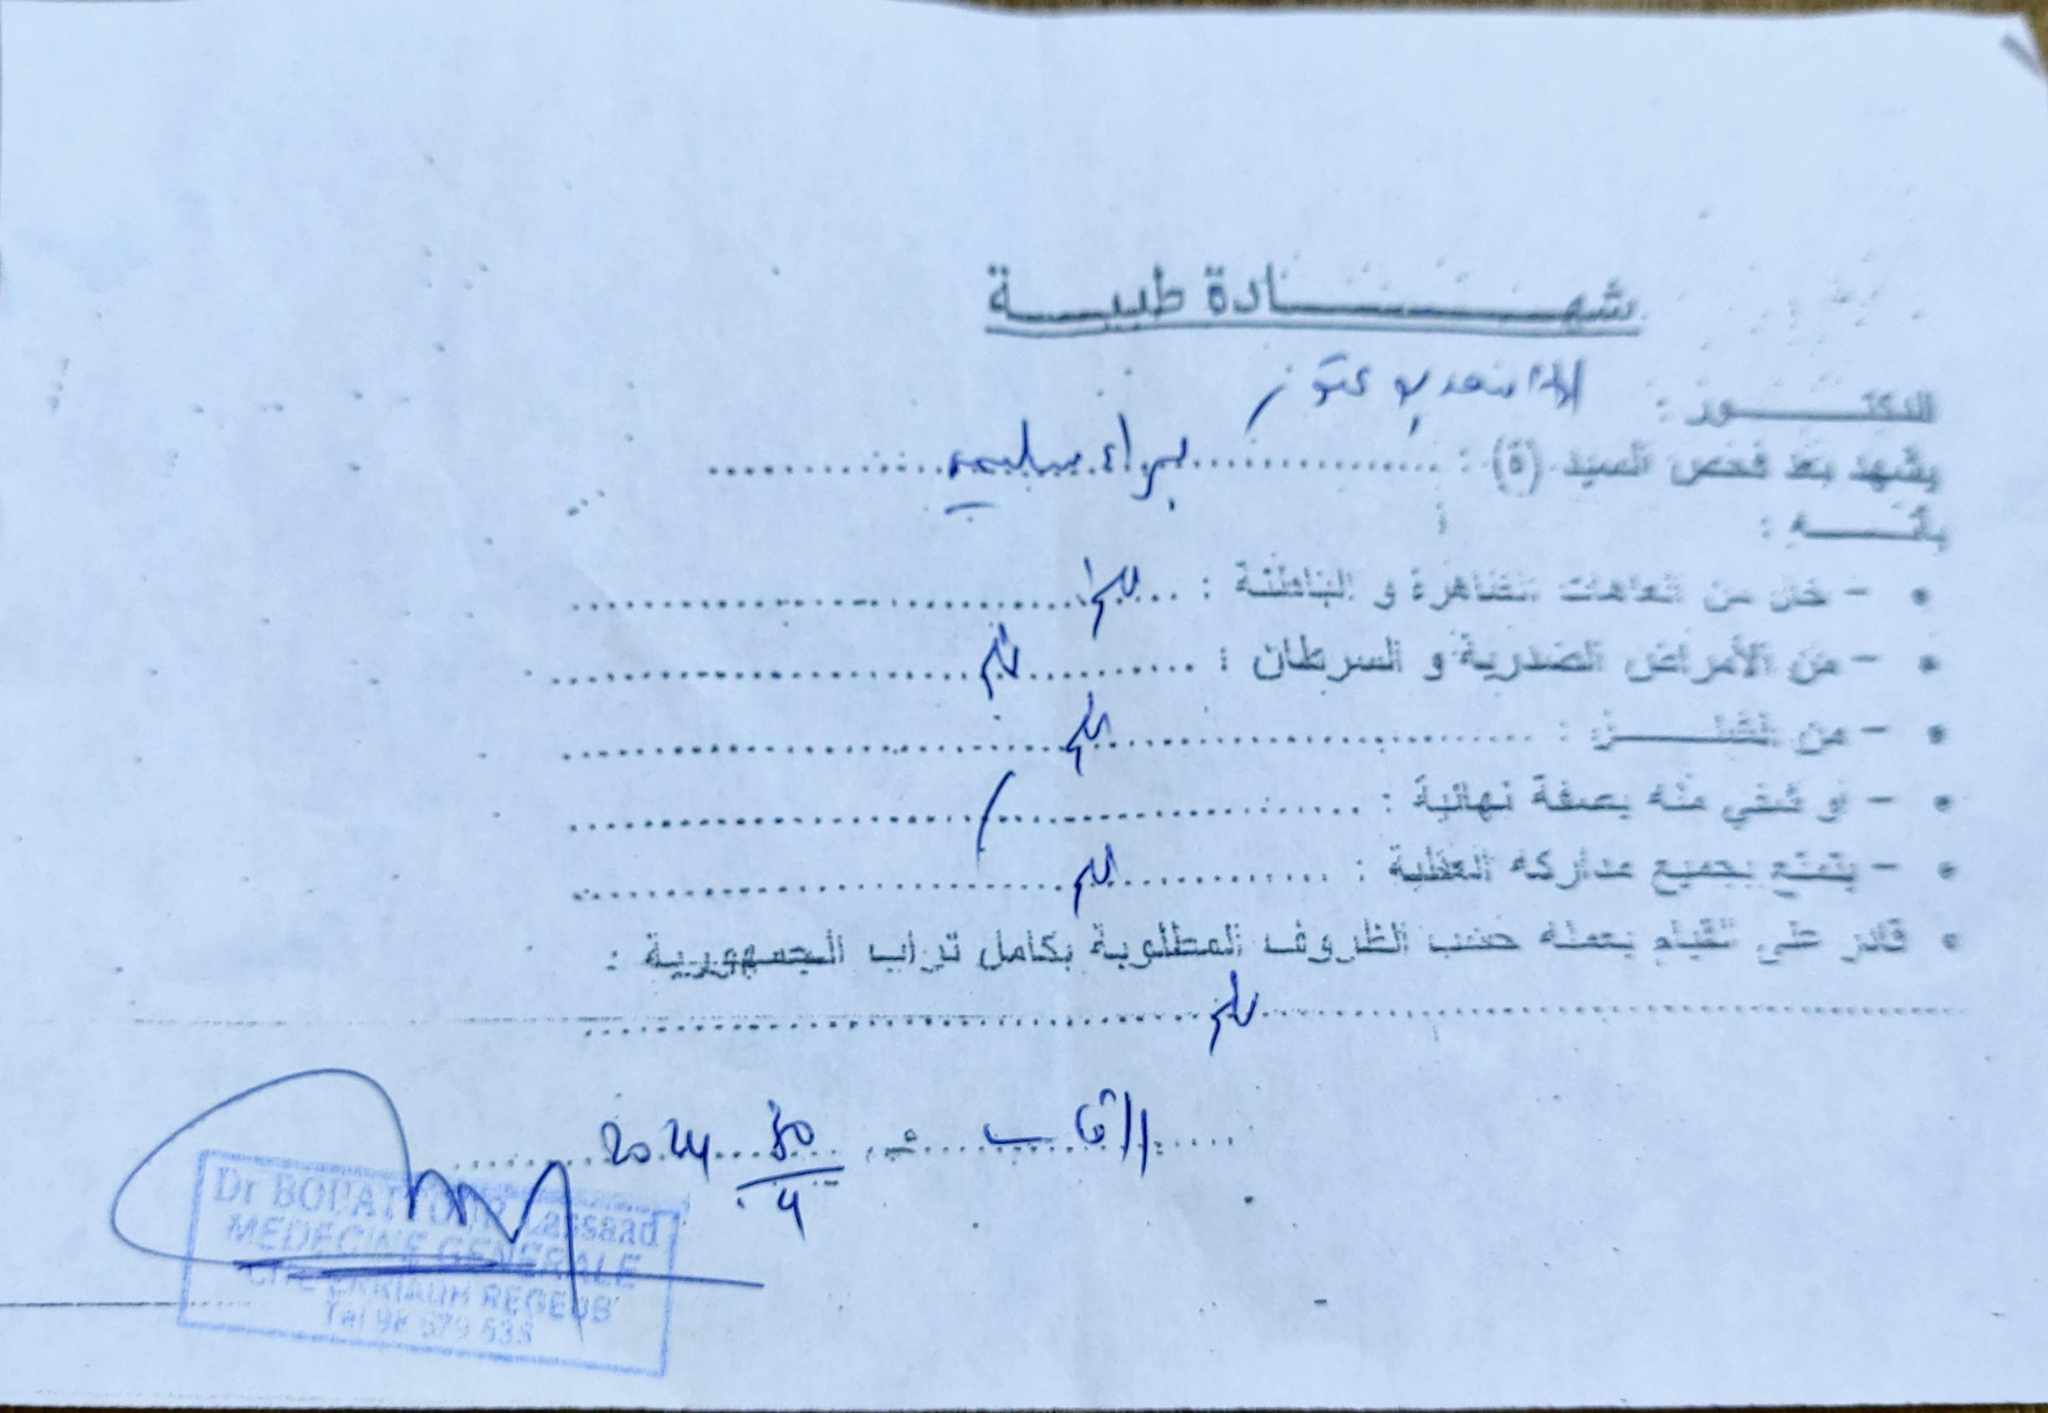 شهادة طبية
الدكتور : الأسعد بو عتور
يشهد بعد فحص السيد (ة) : براء سليمي
بأنه :
• - خال من العاهات الظاهرة و الباطنة : سليم
• - من الأمراض الصدرية و السرطان : سليم
• - من الشلل : سليم
• - أو شفي منه بصفة نهائية : /
• - يتمتع بجميع مداركه العقلية : سليم
• قادر على القيام بعمله حسب الظروف المطلوبة بكامل تراب الجمهورية :
سليم
الرقاب في 30/4 2024
Dr BOUATTOUR Lassaad
MEDECINE GENERALE
CITE REGEUB
Tel 98